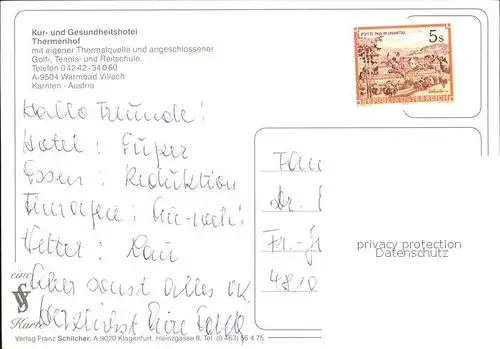 Kur- und Gesundheitshotel
Thermenhof
mit eigener Thermalquelle und angeschlossener
Golf-, Tennis- und Reitschule.
Telefon 0 42 42 - 34 0 60
A-9504 Warmbad Villach
Kärnten - Austria
STIFT ST. PAUL IM LAVANTTAL
5 s
REPUBLIK ÖSTERREICH
Hallo Freunde!
Hotel: Super
Essen: Reduktion
Therapie: Au-weh!
Wetter: Lau
Aber sonst alles OK
Herzlichst Eure
Fam
Dr.
Fr.-
4810
privacy protection
Datenschutz
eine
VS
Karte
Verlag Franz Schilcher, A-9020 Klagenfurt, Heinzgasse 8, Tel (0 463) 56 4 75